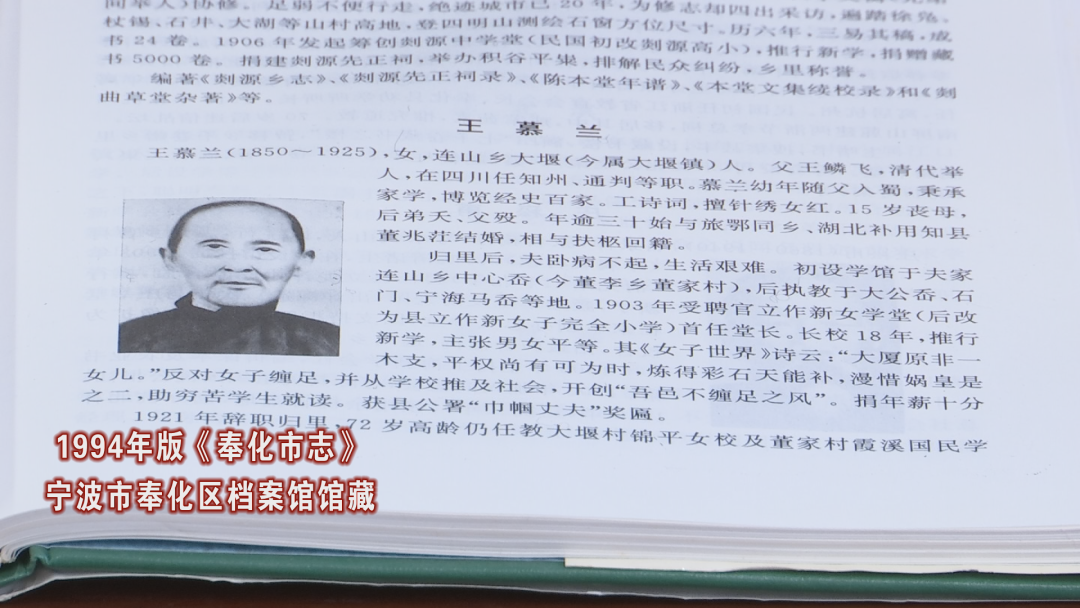 同举人)协修。足弱不便行走,绝迹城市已20年,为修志却四出采访,遍踏徐凫、
杖锡、石井、大湖等山村高地,登四明山测绘石窗方位尺寸。历六年,三易其稿,成
书24卷。1906年发起筹创剡源中学堂(民国初改剡源高小),推行新学,捐赠藏
书5000卷。捐建剡源先正祠,举办积谷平粜,排解民众纠纷,乡里称誉。
编著《剡源乡志》、《剡源先正祠录》、《陈本堂年谱》、《本堂文集续校录》和《剡
曲草堂杂著》等。
王慕兰
王慕兰(1850~1925),女,连山乡大堰(今属大堰镇)人。父王鳞飞,清代举
人,在四川任知州、通判等职。慕兰幼年随父入蜀,秉承
家学,博览经史百家。工诗词,擅针绣女红。15岁丧母,
后弟夭、父殁。年逾三十始与旅鄂同乡、湖北补用知县
董兆荘结婚,相与扶柩回籍。
归里后,夫卧病不起,生活艰难。初设学馆于夫家
连山乡中心岙(今董李乡董家村),后执教于大公岙、石
门、宁海马岙等地。1903年受聘官立作新女学堂(后改
为县立作新女子完全小学)首任堂长。长校18年,推行
新学,主张男女平等。其《女子世界》诗云:“大厦原非一
木支,平权尚有可为时,炼得彩石天能补,漫惜娲皇是
女儿。”反对女子缠足,并从学校推及社会,开创“吾邑不缠足之风”。捐年薪十分
之二,助穷苦学生就读。获县公署“巾帼丈夫”奖匾。
1921年辞职归里,72岁高龄仍任教大堰村锦平女校及董家村霞溪国民学
1994年版《奉化市志》
宁波市奉化区档案馆馆藏